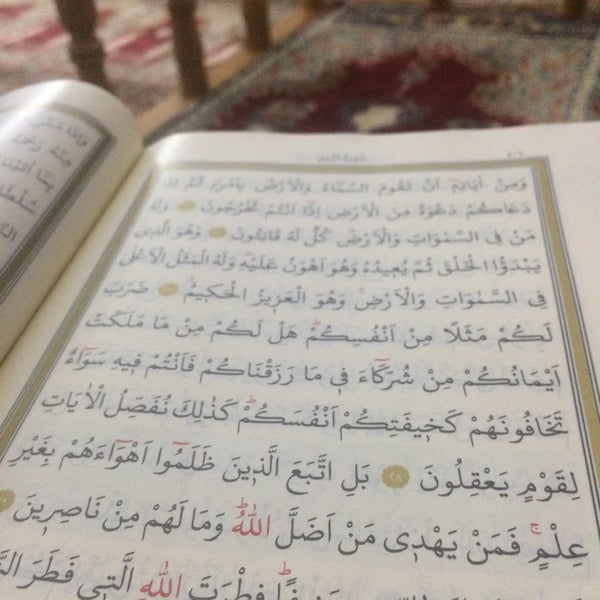 سُورَةُ الرُّومِ
وَمِنْ اٰيَاتِهٖٓ اَنْ تَقُومَ السَّمَٓاءُ وَالْاَرْضُ بِاَمْرِهٖۜ ثُمَّ اِذَا
دَعَاكُمْ دَعْوَةً مِنَ الْاَرْضِ اِذَٓا اَنْتُمْ تَخْرُجُونَ وَلَهُ
مَنْ فِي السَّمٰوَاتِ وَالْاَرْضِۜ كُلٌّ لَهُ قَانِتُونَ وَهُوَ الَّذٖي
يَبْدَؤُا الْخَلْقَ ثُمَّ يُعٖيدُهُ وَهُوَ اَهْوَنُ عَلَيْهِۜ وَلَهُ الْمَثَلُ الْاَعْلٰى
فِي السَّمٰوَاتِ وَالْاَرْضِۚ وَهُوَ الْعَزٖيزُ الْحَكٖيمُ ضَرَبَ
لَكُمْ مَثَلًا مِنْ اَنْفُسِكُمْۜ هَلْ لَكُمْ مِنْ مَا مَلَكَتْ
اَيْمَانُكُمْ مِنْ شُرَكَٓاءَ فٖي مَا رَزَقْنَاكُمْ فَاَنْتُمْ فٖيهِ سَوَٓاءٌ
تَخَافُونَهُمْ كَخٖيفَتِكُمْ اَنْفُسَكُمْۜ كَذٰلِكَ نُفَصِّلُ الْاٰيَاتِ
لِقَوْمٍ يَعْقِلُونَ ٢٨ بَلِ اتَّبَعَ الَّذٖينَ ظَلَمُٓوا اَهْوَٓاءَهُمْ بِغَيْرِ
عِلْمٍۚ فَمَنْ يَهْدٖي مَنْ اَضَلَّ اللّٰهُۜ وَمَا لَهُمْ مِنْ نَاصِرٖينَ
فِطْرَتَ اللّٰهِ الَّتٖي فَطَرَ